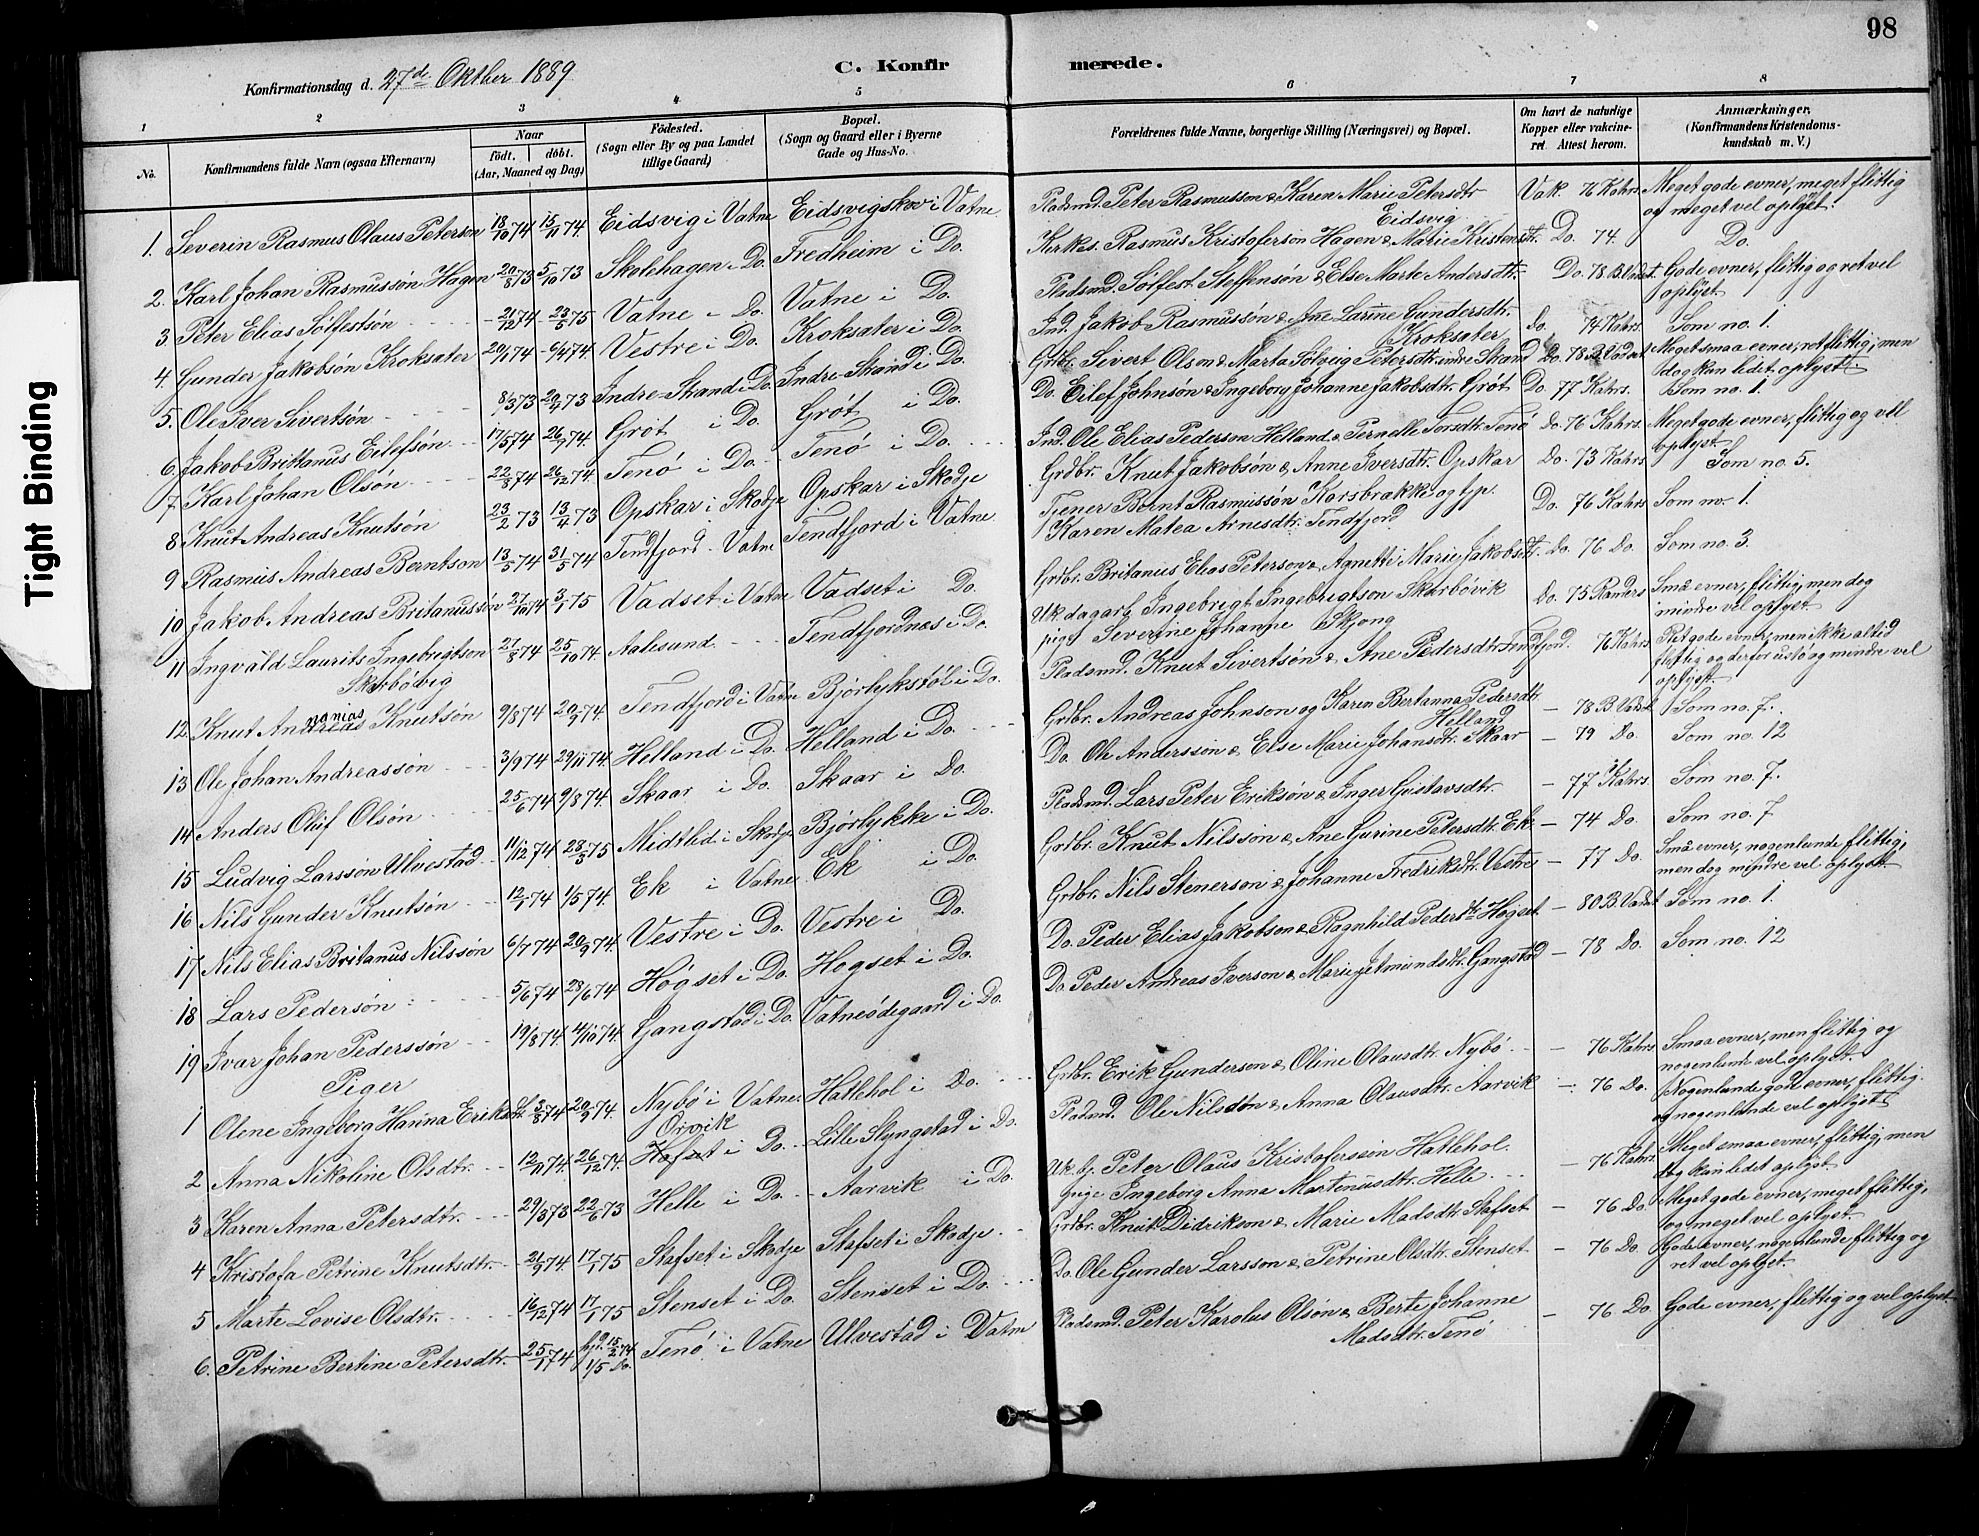 98
Tight Binding
Konfirmationsdag d. 27de Oktber 1889
C. Konfir merede.
1 2 3 4 5 6 7 8
No.
Konfirmandens fulde Navn (ogsaa Efternavn)
Naar
födt. döbt.
(Aar, Maaned og Dag)
Födested.
(Sogn eller By og paa Landet
tillige Gaard)
Bopæl.
(Sogn og Gaard eller i Byerne
Gade og Hus-No.
Forældrenes fulde Navne, borgerlige Stilling (Næringsvei) og Bopæl.
Om havt de naturlige
Kopper eller vakcine-
ret. Attest herom.
Anmærkninger.
(Konfirmandens Kristendoms-
kundskab m. V.)
1. Severin Rasmus Olaus Peterson 18/10 74 15/11 74. Eidsvig i Vatne Eidsvigskov i Vatne Pladsmd. Peter Rasmusson & Karen Marie Petersdtr Eidsvig Vak. 76 Kahrs. Meget gode evner, meget flittig og meget vel oplyst.
2. Karl Johan Rasmussön Hagen 20/8 73 5/10 73 Skolehagen i Do. Fredheim i Do. Kirkes. Rasmus Kristoferson Hagen & Marie Kristensdtr. Do. 74. Do.
3. Peter Elias Sölfestsön 21/12 74 23/5 75 Vatne i Do. Vatne i Do. Pladsmd. Sölfest Steffensön & Else Marte Andersdtr. Do. 78 B. Vadset. Gode evner, flittig og ret vel oplyst
4. Gunder Jakobsön Kroksæter 29/1 74 6/4 74 Vestre i Do. Kroksæter i Do. Ind. Jakob Rasmussön & Ane Larine Gundersdtr. Kroksæter Do. 74 Kahrs. Som no. 1.
5. Ole Iver Sivertsön 8/3 73 20/4 73 Indre-Strand i Do. Indre-Strand i Do. Grdbr. Sivert Olson & Marta Solveig Petersdtr. indre Strand Do. 78 B. Vadset Meget smaa evner, ret flittig, men dog kan ledet oplyst
6. Jakob Brittanus Eilefsön 17/5 74 26/7 74. Gröt i Do. Gröt i Do. Do. Eilef Johnsön & Ingeborg Johanne Jakobsdtr. Gröt Do. 77 Kahrs. Som no. 1
7 Karl Johan Olsön 22/8 74 26/12 74. Tenö i Do. Tenö i Do. Ind. Ole Elias Pederson Helland & Pernelle Torsdtr. Tenö Do. 76 Kahrs. Meget gode evner, flittig og vel oplyst
8 Knut Andreas Knutsön 23/2 73 13/4 73 Opskar i Skodje Opskar i Skodje Grdbr. Knut Jakobsön & Anne Iversdtr. Opskar Do. 73 Kahrs Som no. 5.
9 Rasmus Andreas Berntson 13/5 74 31/5 74 Tendfjord - Vatne Tendfjord i Vatne Tjener Bernt Rasmussön Korsbrække og tjp. Karen Matea Arnesdtr. Tendfjord Do. 76 Kahrs Som no. 1.
10 Jakob Andreas Britanussön 27/10 74 3/1 75 Vadset i Vatne Vadset i Do. Grdbr. Britanus Elias Peterson & Agnette Marie Jakobsdtr. Do. 76 Do. Som no. 3.
11 Ingvald Laurits Ingebrigtson Skarbövig 27/8 74 25/10 74. Aalesund. Tendfjordnes i Do. Uk. dagarb. Ingebrigt Ingebrigtson Skarbövik pige Severine Johanne Skjong Do. 75 Randers Små evner, flittig, men dog mindre vel oplyst
12 Knut Ananias Knutsön 9/8 74 20/9 74. Tendfjord i Vatne Bjorlykstöl i Do. Pladsmd. Knut Sivertsön & Ane Pedersdtr. Tendfjord. 76 Kahrs. Ret gode evner, men ikke altid flittig og derfor ustö og mindre vel oplyst
13 Ole Johan Andreassön 3/9 74 29/11 74 Helland i Do. Helland i Do. Grdbr. Andreas Johnson og Karen Bertanna Pedersdtr. Helland 78 B. Vadset Som no. 7.
14 Anders Oluf Olsön 25/6 74 9/8 74. Skaar i Do. Skaar i Do. Do. Ole Andersson & Else Marie Johansdtr. Skaar 79 Do. Som no. 12
15 Ludvig Larssön Ulvestad 11/12 74 28/3 75 Midtlid i Skodje Bjorlykke i Do. Pladsmd. Lars Peter Eriksön & Inger Gustavsdtr. 77 Kahrs Som no. 7.
16 Nils Gunder Knutsön 12/1 74 1/5 74. Ek i Vatne Ek i Do. Grdbr. Knut Nilssön & Ane Gurine Petersdtr. Ek 74 Do. Som no. 7
17 Nils Elias Britanus Nilssön 6/7 74 20/9 74. Vestre i Do. Vestre i Do. Grdbr. Nils Stenerson & Johanne Fredriksdtr. Vestre 77 Do. Små evner, nogenlunde flittig, men dog mindre vel oplyst
18 Lars Pedersön 5/6 74 28/6 74 Högset i Do. Hogset i Do. Do. Peder Elias Jakobson & Ragnhild Pedersdtr. Hogset 80 B. Vadset Som no. 1.
19 Ivar Johan Pederssön 19/8 74. 4/10 74. Gangstad i Do. Vatneödegaard i Do. Do. Peder Andreas Iverson & Marie Jetmundsdtr. Gangstad 78 Do. Som no. 12
Piger
1 Olene Ingeborg Hanna Eriksdtr. 3/8 74 20/9 74. Nybö i Vatne Hatlehol i Do. Grdbr. Erik Gunderson & Oline Olausdtr. Nybö 76 Kahrs Smaa evner, men flittig og nogenlunde vel oplyst.
2 Anna Nikoline Olsdtr. 12/11 74. 26/12 74. Orvik i Do. Lille Slyngstad i Do. Pladsmd. Ole Nilsdön & Anna Olausdtr. Aarvik 76 Do. Nogenlunde gode evner, flittig. og nogenlunde vel oplyst
3 Karen Anna Petersdtr. 29/3 73 22/6 73 Helle i Do. Aarvik i Do. Uk. tj. Peter Olaus Kristoferssön Hatlehol. pige Ingeborg Anna Martenusdtr. Helle 76 Kahrs. Meget smaa evner, flittig, men dog kan ledet oplyst
4 Kristofa Petrine Knutsdtr. 21/9 74. 17/1 75 Stafset i Skodje Stafset i Skodje Grdbr. Knut Didrikson & Marie Madsdtr. Stafset 76 Do. Meget gode evner, meget flittig, og meget vel oplyst.
5 Marte Lovise Olsdtr. 16/12 74 17/1 75 Stenset i Do. Stenset i Do. Do. Ole Gunder Larsson & Petrine Olsdtr. Stenset 76 Do. Gode evner, nogenlunde flittig og ret vel oplyst.
6. Petrine Bertine Petersdtr. 25/1 74 hjd. 15/2 74 1/5 Do. Tenö i Vatne Ulvestad i Vatne Pladsmd. Peter Karolus Olsön & Berte Johanne Madsdtr. Tenö 76 Do. Gode evner, flittig og vel oplyst.